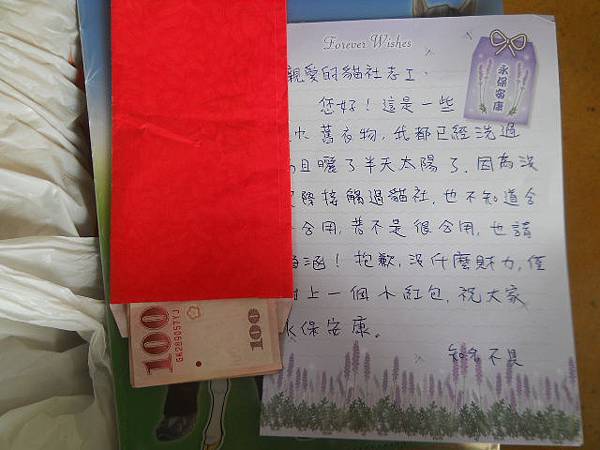 Forever Wishes
永保安康
親愛的貓社志工，
您好！這是一些
巾舊衣物，我都已經洗過
且曬了半天太陽了。因為沒
際接觸過貓社，也不知道合
合用，若不是很合用，也請
涵！抱歉，沒什麼財力，僅
上一個小紅包，祝大家
永保安康。
知名不具
100
GK289057YJ
100